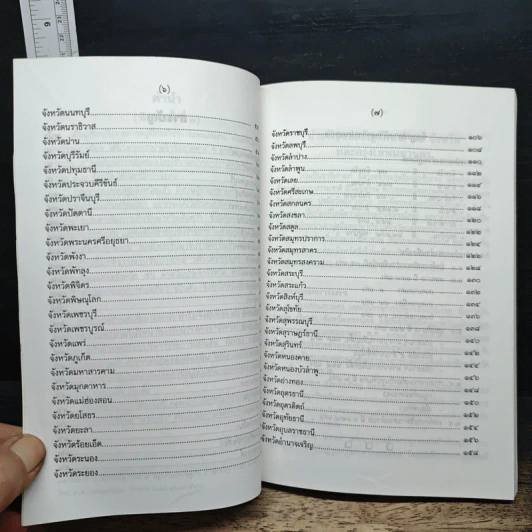 (๖)
จังหวัดนนทบุรี
จังหวัดนราธิวาส
จังหวัดน่าน
จังหวัดบุรีรัมย์
จังหวัดปทุมธานี
จังหวัดประจวบคีรีขันธ์
จังหวัดปราจีนบุรี
จังหวัดปัตตานี
จังหวัดพะเยา
จังหวัดพระนครศรีอยุธยา
จังหวัดพังงา
จังหวัดพัทลุง
จังหวัดพิจิตร
จังหวัดพิษณุโลก
จังหวัดเพชรบุรี
จังหวัดเพชรบูรณ์
จังหวัดแพร่
จังหวัดภูเก็ต
จังหวัดมหาสารคาม
จังหวัดมุกดาหาร
จังหวัดแม่ฮ่องสอน
จังหวัดยโสธร
จังหวัดยะลา
จังหวัดร้อยเอ็ด
จังหวัดระนอง
จังหวัดระยอง
(๗)
จังหวัดราชบุรี ๑๐๖
จังหวัดลพบุรี ๑๐๘
จังหวัดลำปาง ๑๑๐
จังหวัดลำพูน ๑๑๒
จังหวัดเลย ๑๑๔
จังหวัดศรีสะเกษ ๑๑๖
จังหวัดสกลนคร ๑๑๘
จังหวัดสงขลา ๑๒๐
จังหวัดสตูล ๑๒๒
จังหวัดสมุทรปราการ ๑๒๔
จังหวัดสมุทรสาคร ๑๒๖
จังหวัดสมุทรสงคราม ๑๒๘
จังหวัดสระบุรี ๑๓๐
จังหวัดสระแก้ว ๑๓๒
จังหวัดสิงห์บุรี ๑๓๔
จังหวัดสุโขทัย ๑๓๖
จังหวัดสุพรรณบุรี ๑๓๘
จังหวัดสุราษฎร์ธานี ๑๔๐
จังหวัดสุรินทร์ ๑๔๒
จังหวัดหนองคาย ๑๔๔
จังหวัดหนองบัวลำพู ๑๔๖
จังหวัดอ่างทอง ๑๔๘
จังหวัดอุดรธานี ๑๕๐
จังหวัดอุตรดิตถ์ ๑๕๒
จังหวัดอุทัยธานี ๑๕๔
จังหวัดอุบลราชธานี ๑๕๖
จังหวัดอำนาจเจริญ ๑๕๘